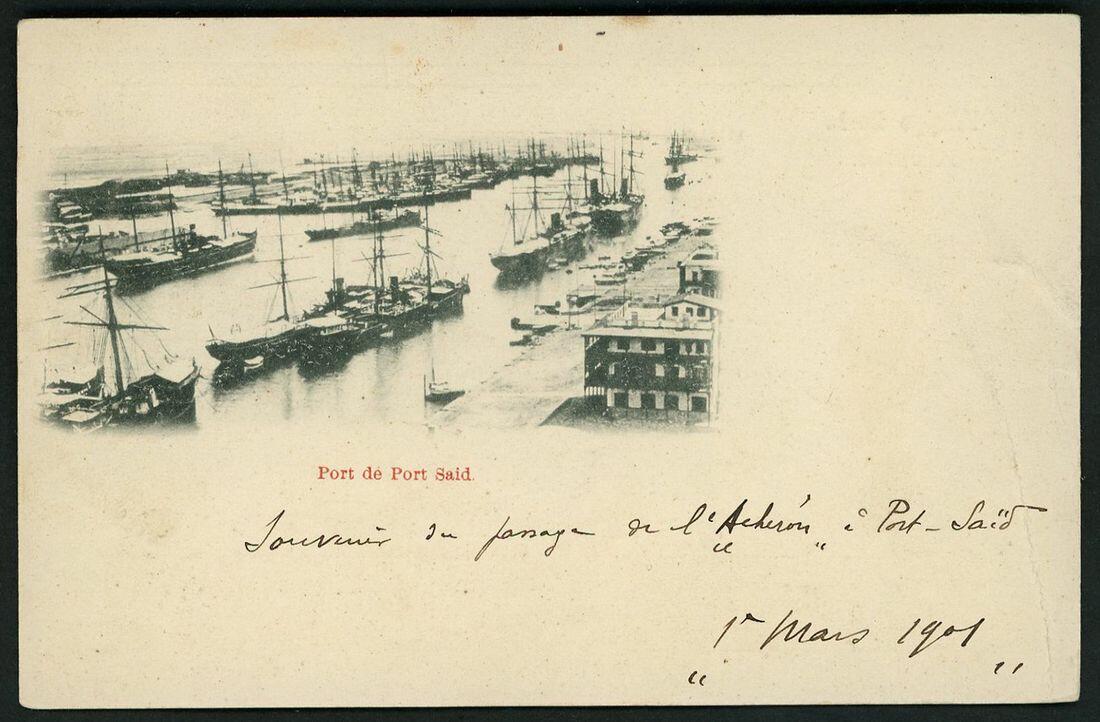 Port de Port Said.
Souvenir du passage de l'"Acheron" à Port-Saïd
"1er Mars 1901"